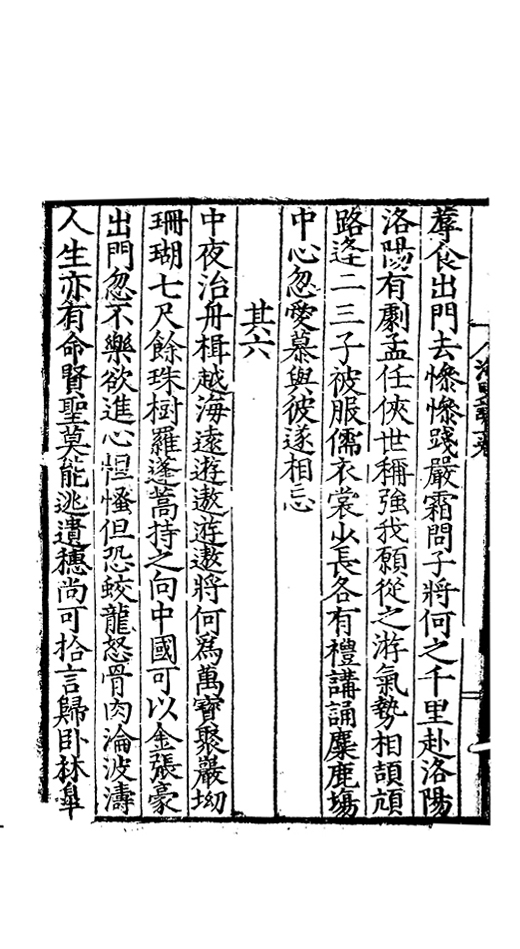 蓐食出門去慘慘踐嚴霜問子將何之千里赴洛陽
洛陽有劇孟任俠世稱強我願從之游氣勢相頡頏
路逢二三子被服儒衣裳少長各有禮講誦麋鹿塲
中心忽愛慕與彼遂相忘
其六
中夜治舟楫越海遠遊遨遊遨將何爲萬寶聚巖坳
珊瑚七尺餘珠樹羅蓬蒿持之向中國可以金張豪
出門忽不樂欲進心怛慅但恐蛟龍怒骨肉淪波濤
人生亦有命賢聖莫能逃遺穗尚可拾言歸卧林皐